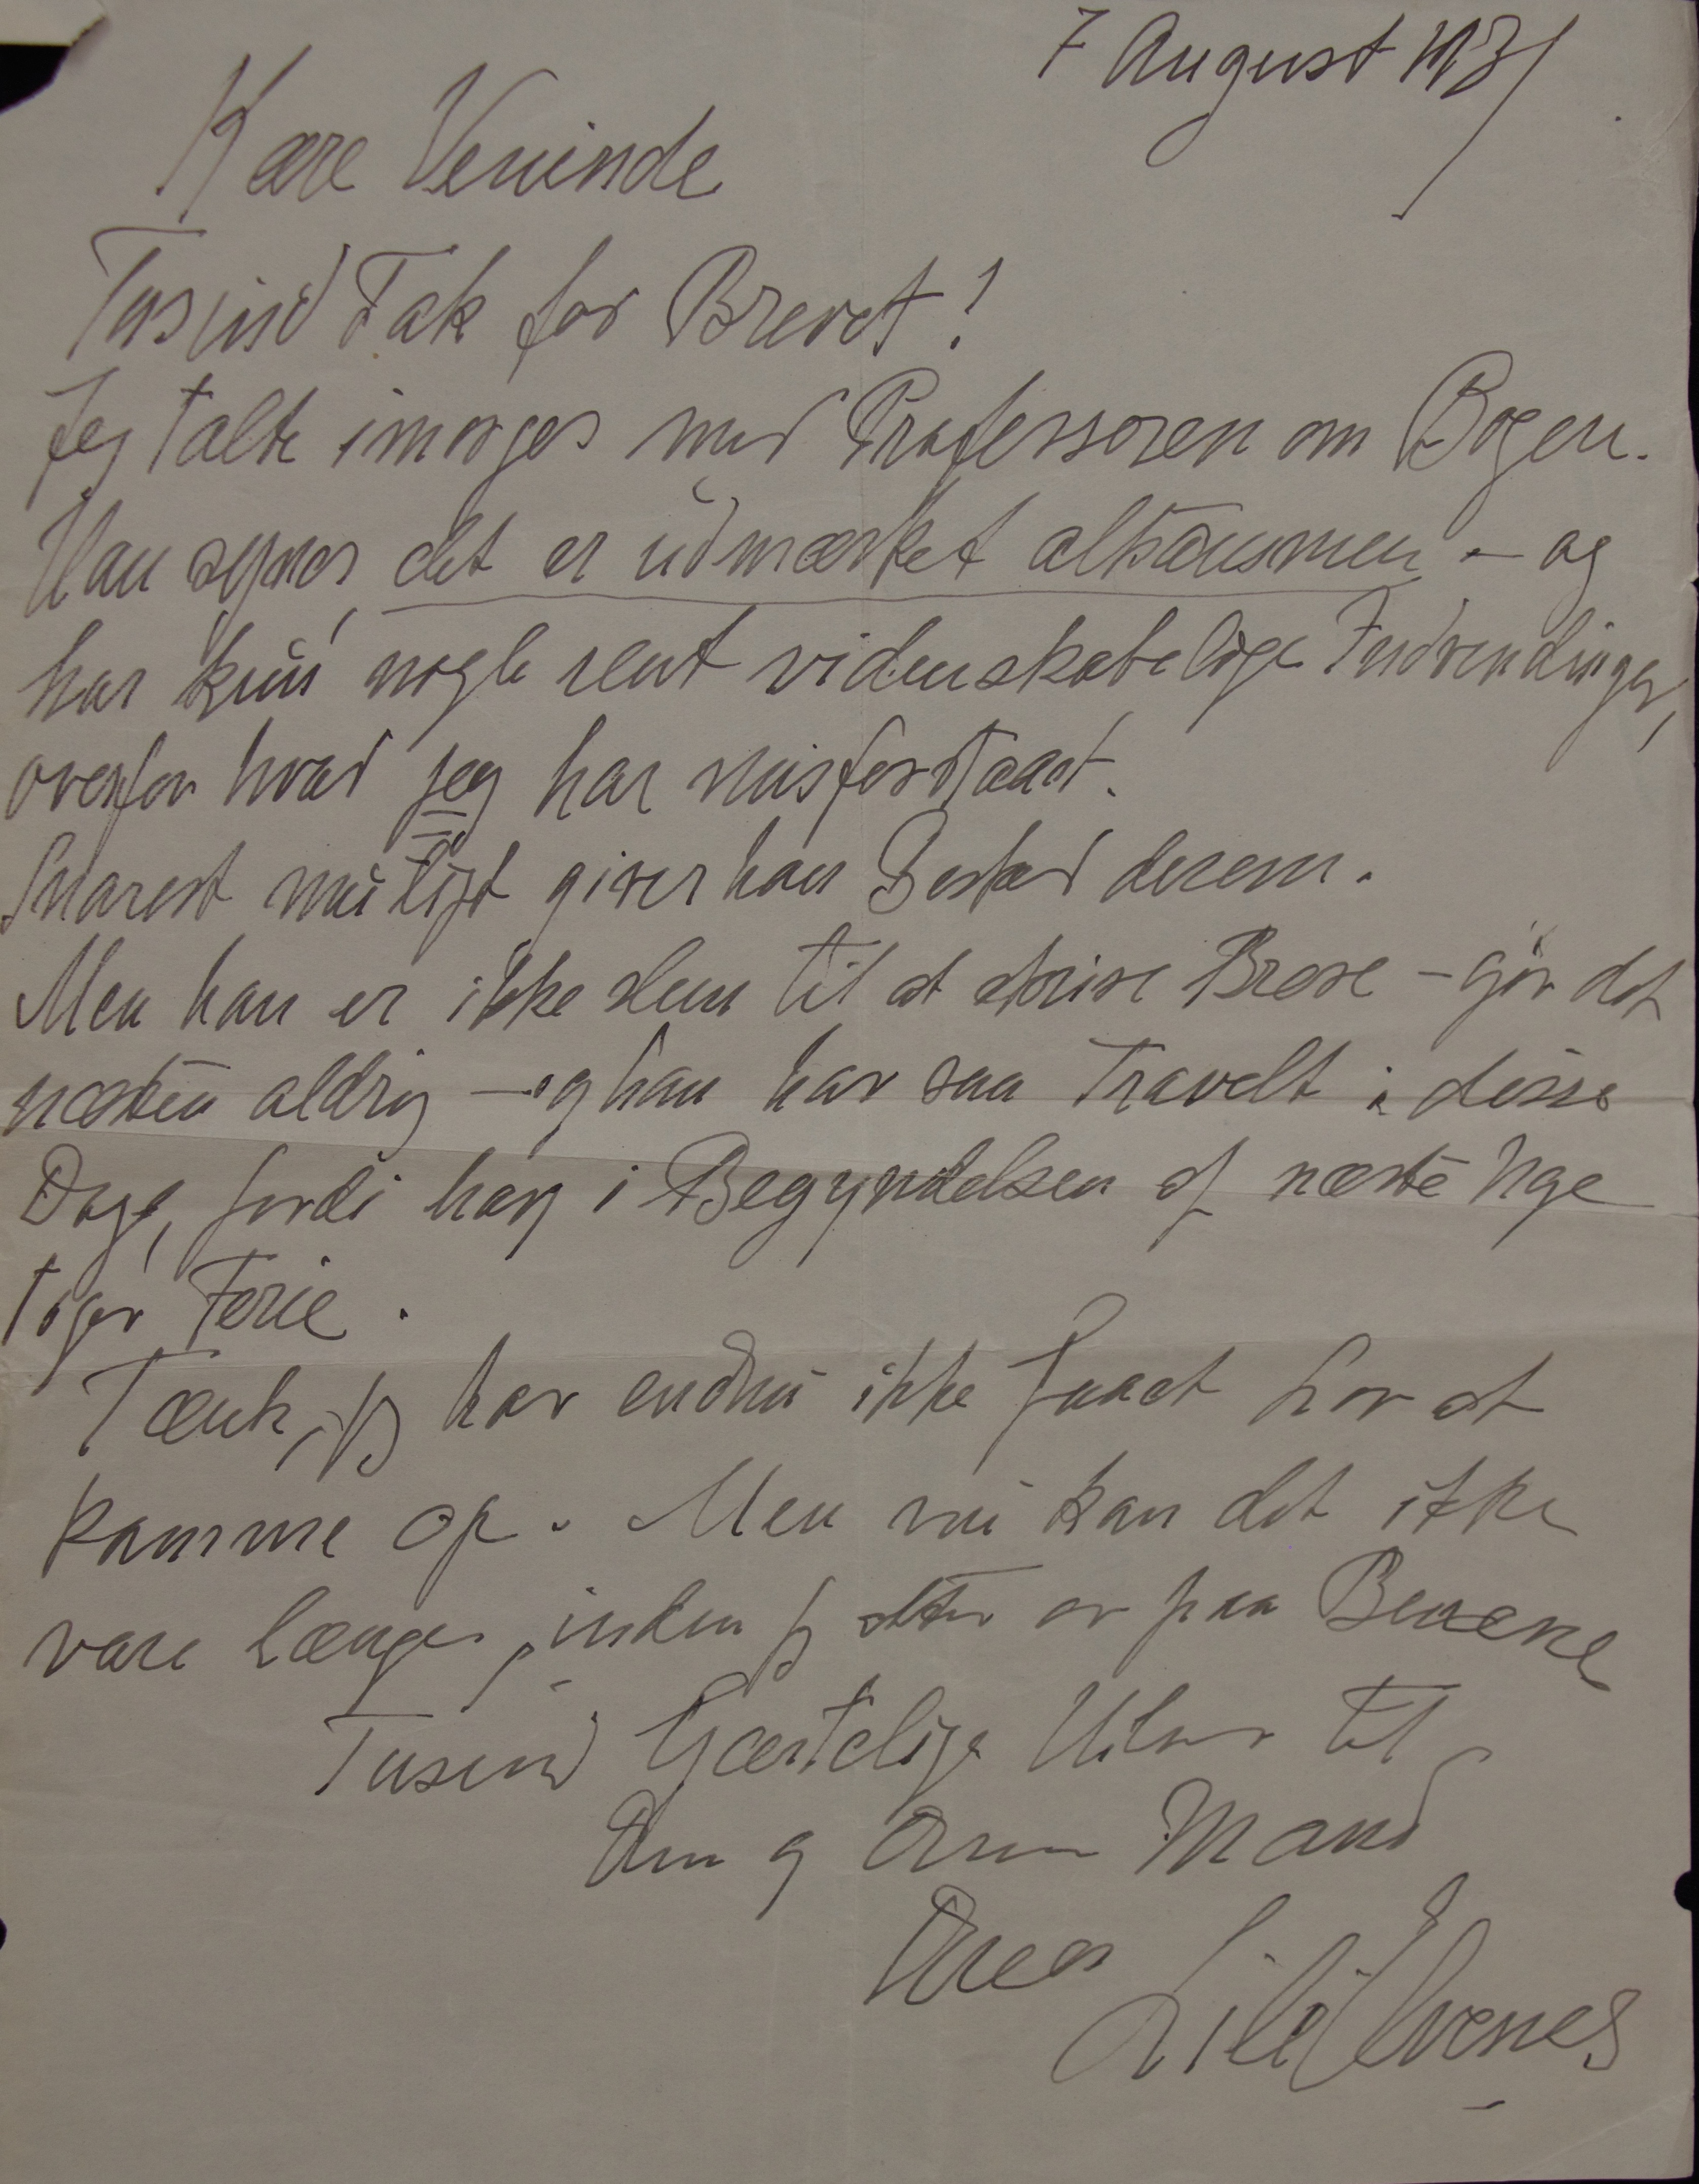 7 August 1931
Kære Veninde
Tusind Tak for Brevet!
Jeg talte imorges med Professoren om Bogen.
Han synes, det er udmærket altsammen – og
har kun nogle rent videnskabelige Indvendinger,
overfor hvad jeg har misforstaaet.
Snarest muligt giver han Besked derom.
Men han er ikke slem til at skrive Breve – gør det
næsten aldrig – og han har saa travlt i disse
Dage, fordi han i Begyndelsen af næste Uge
tager Ferie.
Tænk, jeg har endnu ikke faaet Lov at
komme op. Men nu kan det ikke
vare længe, inden jeg atter er paa Benene
Tusind hjærtelige Hilsner til
Dem og Deres Mand
Deres
Lili Elvenes